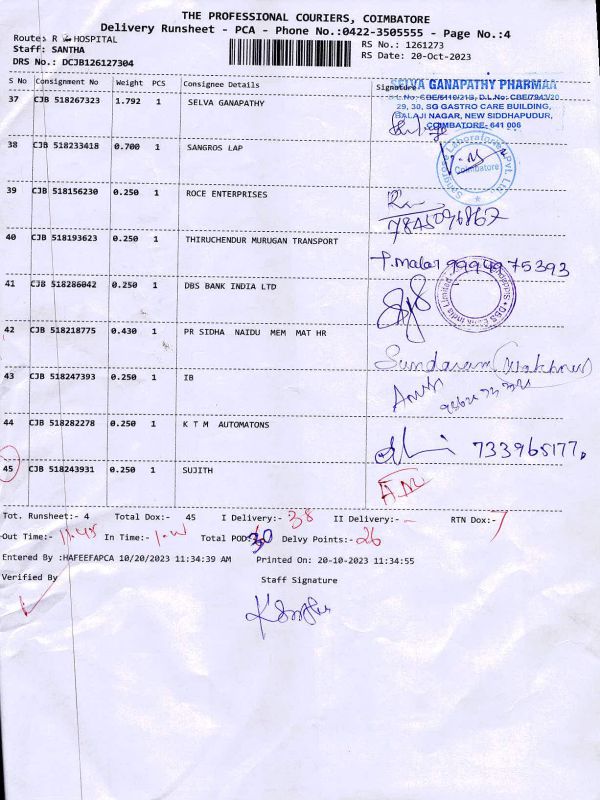 THE PROFESSIONAL COURIERS, COIMBATORE
Delivery Runsheet - PCA - Phone No.:0422-3505555 - Page No.:4
Route: R K HOSPITAL
RS No.: 1261273
Staff: SANTHA
RS Date: 20-Oct-2023
DRS No.: DCJB126127304
S No Consignment No Weight PCS Consignee Details Signature
SELVA GANAPATHY PHARMAA
29, 30, SG GASTRO CARE BUILDING,
BALAJI NAGAR, NEW SIDDHAPUDUR,
COIMBATORE- 641 006
37 CJB 518267323 1.792 1 SELVA GANAPATHY
38 CJB 518233418 0.700 1 SANGROS LAP
Coimbatore
39 CJB 518156230 0.250 1 ROCE ENTERPRISES
7845096867
40 CJB 518193623 0.250 1 THIRUCHENDUR MURUGAN TRANSPORT
T.malar 9994975393
41 CJB 518286042 0.250 1 DBS BANK INDIA LTD
DBS Bank India Limited
42 CJB 518218775 0.430 1 PR SIDHA NAIDU MEM MAT HR
Sundaram
43 CJB 518247393 0.250 1 IB
44 CJB 518282278 0.250 1 K T M AUTOMATONS
733965177
45 CJB 518243931 0.250 1 SUJITH
Tot. Runsheet:- 4 Total Dox:- 45 I Delivery:- 38 II Delivery:- - RTN Dox:- 7
Out Time:- 11.45 In Time:- Total POD: 30 Delvy Points:- 26
Entered By :HAFEEFAPCA 10/20/2023 11:34:39 AM Printed On: 20-10-2023 11:34:55
Verified By Staff Signature